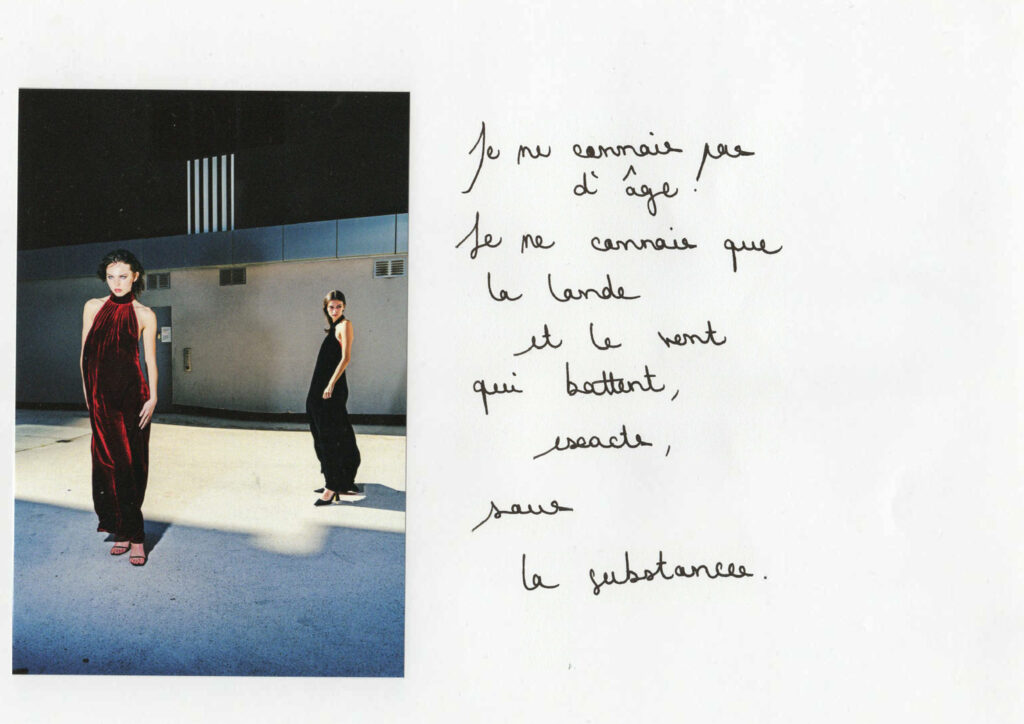 Je ne connais pas
d'âge.
Je ne connais que
la lande
et le vent
qui battent,
exacts,
sous
la substance.